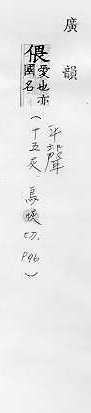 廣韻
偎愛也亦
國名
(平聲
十五灰 烏恢切, P96)